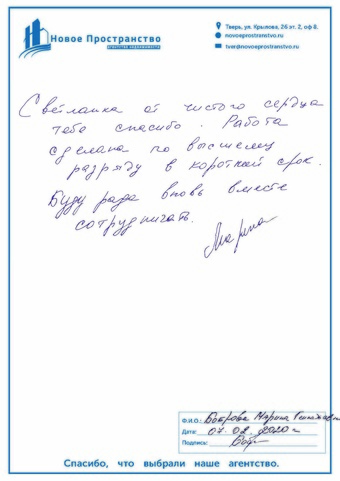 Новое Пространство
агентство недвижимости
Тверь, ул. Крылова, 26 эт. 2, оф 8.
novoeprostranstvo.ru
tver@novoeprostranstvo.ru
Светланка от чистого сердца
тебе спасибо. Работа
сделана по высшему
разряду в короткий срок.
Буду рада вновь вместе
сотрудничать.
Марина
Ф.И.О.: Боброва Марина
Дата: 07.02.2020 г
Подпись: Бобр
Спасибо, что выбрали наше агентство.